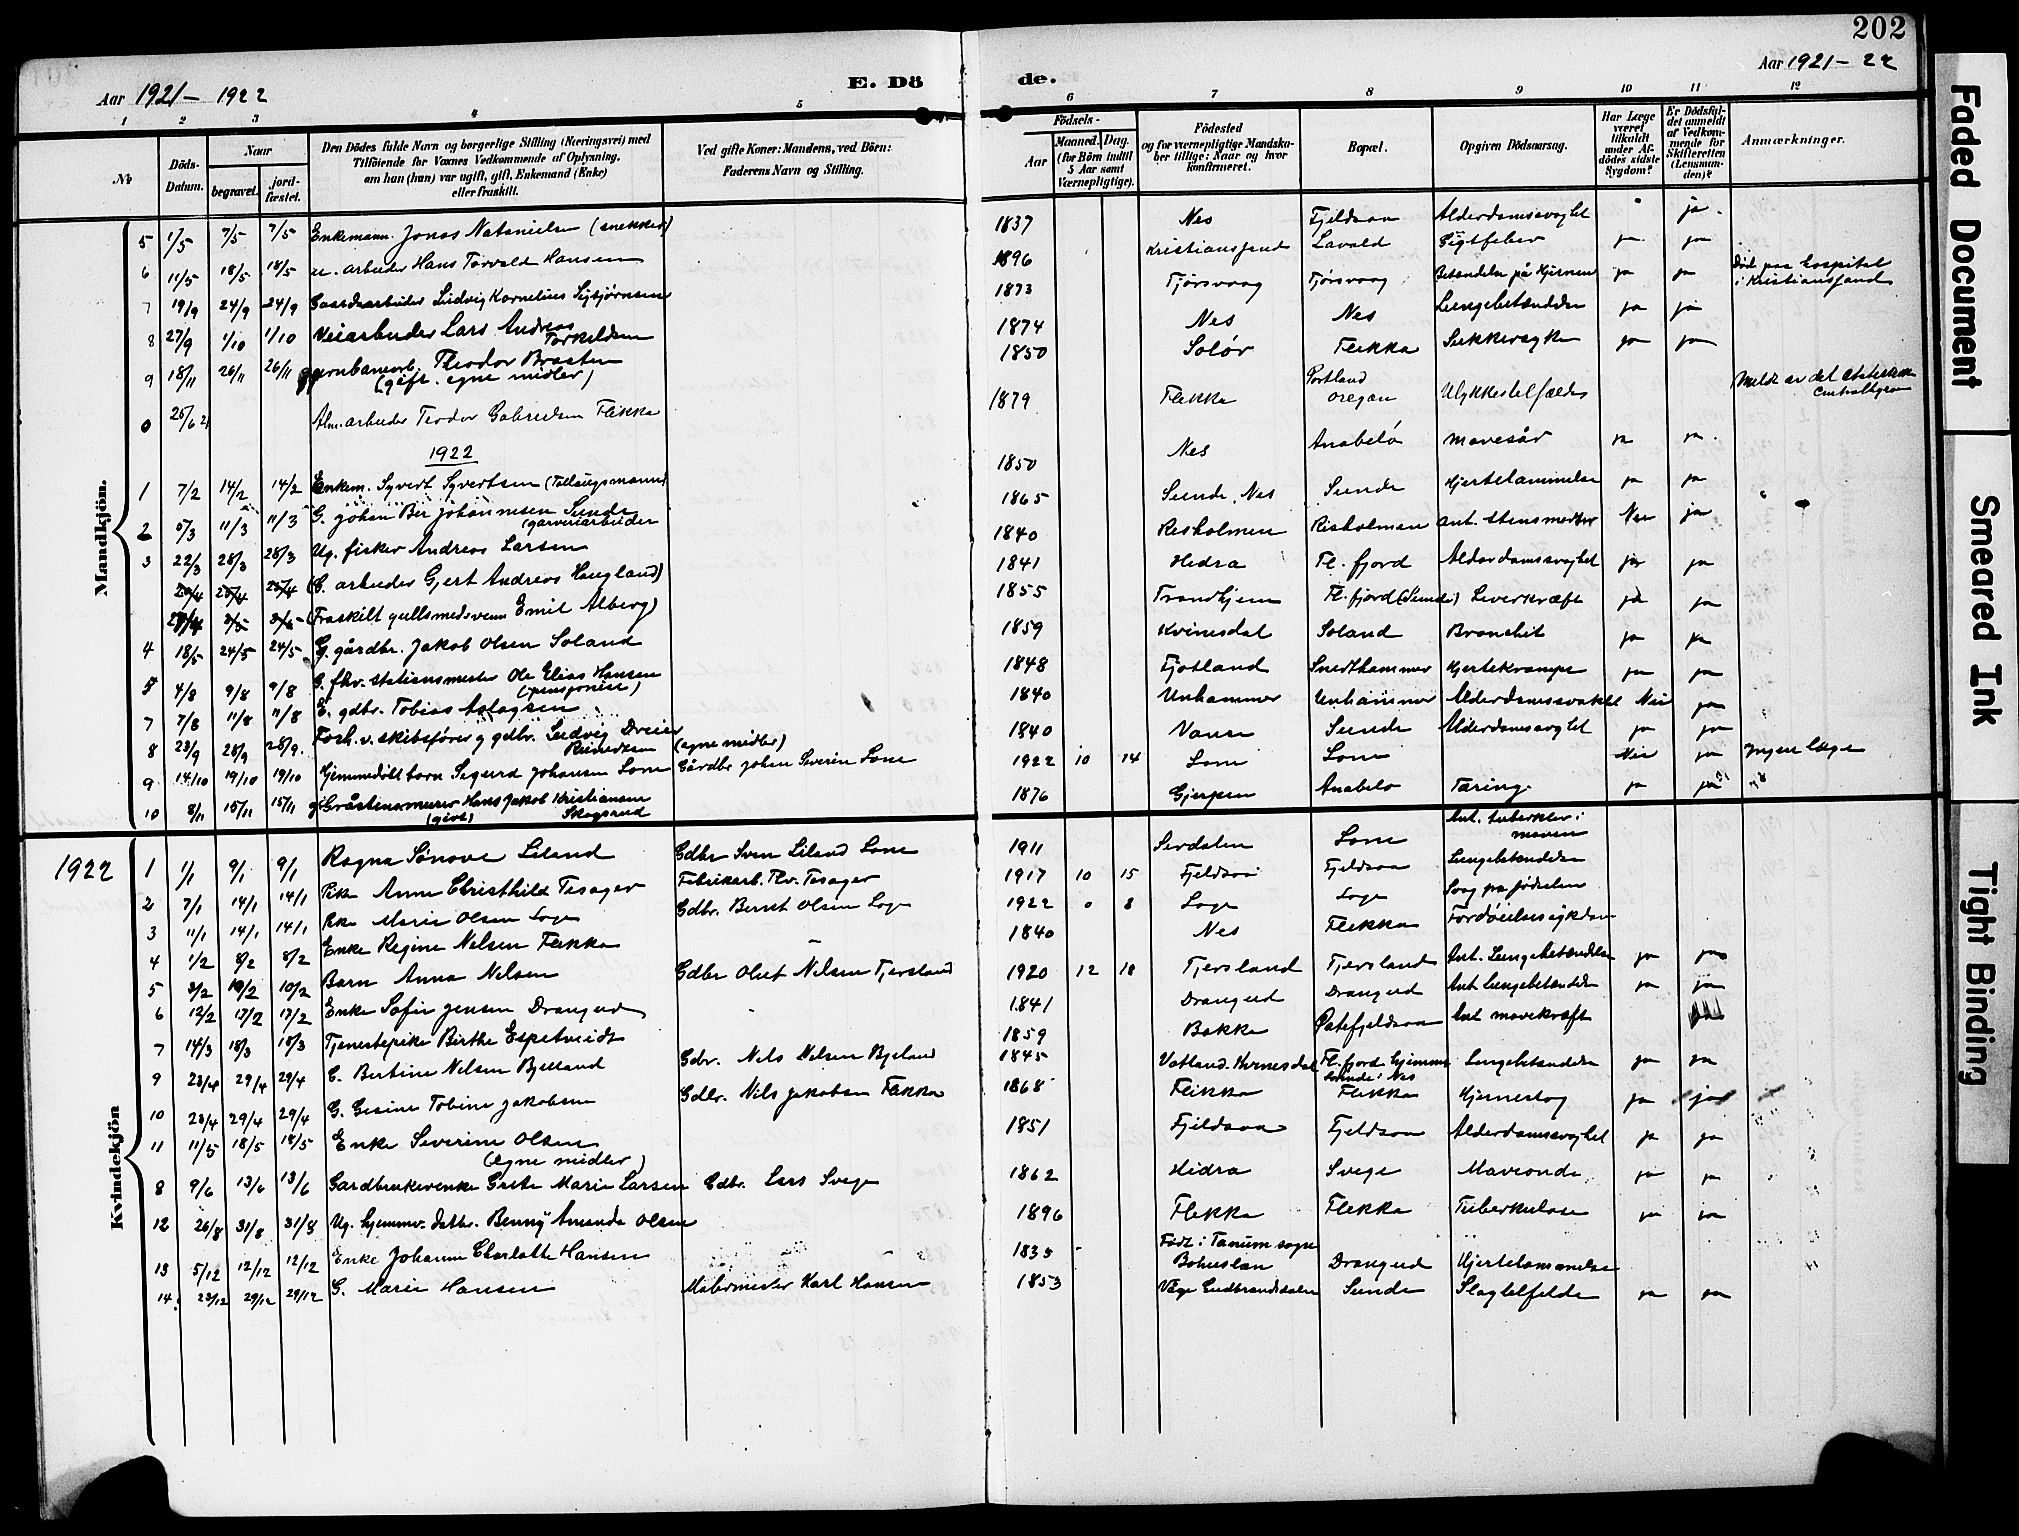 202
Aar 1921 - 1922
E. Dö
de.
Aar 1921 - 22
1 2 3 4 5 6 7 8 9 10 11 12
№
Döds-Datum.
Naar
begravet.
jord-fæstet.
Den Dödes fulde Navn og borgerlige Stilling (Næringsvei) med
Tilföiende for Voxnes Vedkommende af Oplysning,
om han (hun) var ugift, gift, Enkemand (Enke)
eller fraskilt.
Ved gifte Koner: Mandens, ved Börn:
Faderens Navn og Stilling.
Födsels-
Aar
Maaned. Dag.
(for Börn indtil 5 Aar samt Værnepligtige).
Födested
og for værnepligtige Mandska-
ber tillige: Naar og hvor
konfirmeret.
Bopæl.
Opgiven Dödsaarsag.
Har Læge været tilkaldt under Afdödes sidste Sygdom?
Er Dödsfaldet anmeldt af Vedkommende for Skifteretten (Lensmanden)?
Anmærkninger.
Mandkjön.
5 1/5 7/5 7/5 Enkemann Jonas Natanielsen (snekker) 1837 Nes Fjeldsaa Alderdomssvaghet ja
6 11/5 18/5 18/5 u. arbeider Hans Torvald Hansen 1896 Kristianssand Lavold ja ja Död paa hospital i Kristianssand
7 19/9 24/9 24/9 Gaardsarbeider Ludvig Kornelius 1873 Tjørsvaag Tjørsvaag Betændelse på hjernen ja ja
8 27/9 1/10 1/10 Veiarbeider Lars Andreas Torkildsen 1874 Nes Nes Lungebetændelse ja ja
9 18/11 26/11 26/11 Theodor Braaten (gift. egne midler) 1850 Solør Flikka Sukkersyke ja ja
0 25/6 21 Alm. arbeider Teodor Gabrielsen Flikka 1879 Flikka Portland Oregon Ulykkestilfælde Meldt av det
1922
1 7/2 14/2 14/2 Enkem. Syvert Syvertsen 1850 Nes Anabelø mavesår ja ja
2 5/3 11/3 11/3 G. Johan Ber Johannesen Sunde (garveriarbeider 1865 Sunde, Nes Sunde Hjertelammelse ja ja
3 22/3 28/3 28/3 Ug. fisker Andreas Larsen 1840 Risholmen Risholmen Nei ja
25/4 25/4 (E. arbeider Gjert Andreas Haugland) 1841 Hidra Fl. fjord Alderdomssvaghet ja ja
(Fraskilt gullsmedsvenn Emil Alberg) 1855 Trondhjem Fl. fjord (Sunde) Leverkræft ja ja
4 18/5 24/5 24/5 G. gårdbr. Jakob Olsen Soland 1859 Kvinesdal Soland Bronchit ja ja
5 4/8 9/8 9/8 G. fhv. stationsmester Ole Elias Hansen (pensjonist) 1848 Fjotland Hjertekrampe ja ja
7 7/8 11/8 11/8 E. gdbr. Tobias Aslagsen 1840 Unhammer Unhammer Alderdomssvakhet Nei ja
8 23/9 28/9 28/9 Forh. v. skibsfører g gdbr. Ludvig Dreier (egne midler) 1840 Vanse Sunde Alderdomssvaghet ja ja
9 14/10 19/10 19/10 Hjemmedøbt barn Sigurd Johansen Lone Gårdbr. Johan Severin Lone 1922 10 14 Lone Lone Nei ja Ingen læge
10 8/11 15/11 15/11 g. Gråstensmurer Hans Jakob Kristiansen Skogsrud (givt) 1876 Gjerpen Anabelø Tæring ja ja
Kvindekjön
1922
1 1/1 9/1 9/1 Ragna Sønove Liland Gdbr Sven Liland Lone 1911 Serdalen Lone Ant. tuberkler i maven
2 7/1 14/1 14/1 Pike Anne Christhild Tesager Fabrikarb. Thv. Tesager 1917 10 15 Fjeldsaa Fjeldsaa Lungebetændelse
3 11/1 14/1 14/1 Pike Marie Olsen Loge Gdbr. Bernt Olsen Loge 1922 0 8 Loge Loge Svag fra fødselen
4 1/2 8/2 8/2 Enke Regine Nelsen Flikka - 1840 Nes Flikka Fordøielsessykdom
5 3/2 10/2 10/2 Barn Anna Nelsen Gdbr Oluf Nelsen Tjersland 1920 12 18 Tjersland Tjersland Ant. Lungebetændelse ja ja
6 12/2 17/2 17/2 Enke Sofie Jensen Drangeid 1841 Drangeid Drangeid Ant Lungebetændelse ja ja
7 14/3 18/3 18/3 Tjenestepike Birthe Espetveidt 1859 Bakke Østefjeldsaa Ant mavekræft ja
9 23/4 29/4 29/4 G. Bertine Nelsen Bjelland Gdbr. Nels Nelsen Bjelland 1845 Vatland. Kvinesdal Fl. fjord hjemme Sunde i Nes Lungebetændelse ja ja
10 23/4 29/4 29/4 G. Gesine Tobine Jakobsen Gdbr. Nils Jakobsen Flikka 1868 Flikka Flikka Hjerneslag ja ja
11 11/5 18/5 18/5 Enke Severine Olsen (egne midler) 1851 Fjeldsaa Fjeldsaa Alderdomssvaghet ja ja
8 9/6 13/6 13/6 Gardbrukerenke Grete Marie Larsen Gdbr. Lars Svege 1862 Hidra Svege Maveonde ja ja
12 26/8 31/8 31/8 Ug. hjemmv. datter. Benny Amanda Olsen 1896 Flikka Flikka Tuberkulose ja ja
13 5/12 12/12 12/12 Enke Johanne Charlotte Hansen 1835 Født i Tanum sogn Bohuslän Drangeid Hjertelammelse
14 23/12 29/12 29/12 G. Marie Hansen Malermester Karl Hansen 1853 Gudbrandsdalen Sunde Slagtilfelde ja ja
Faded Document
Smeared Ink
Tight Binding